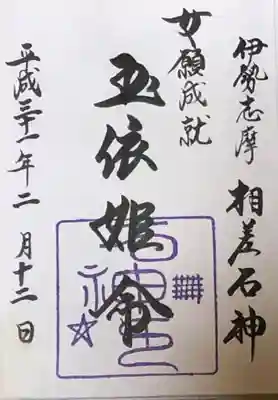 伊勢志摩 相差石神
女願成就
玉依姫命
平成三十一年二月十二日